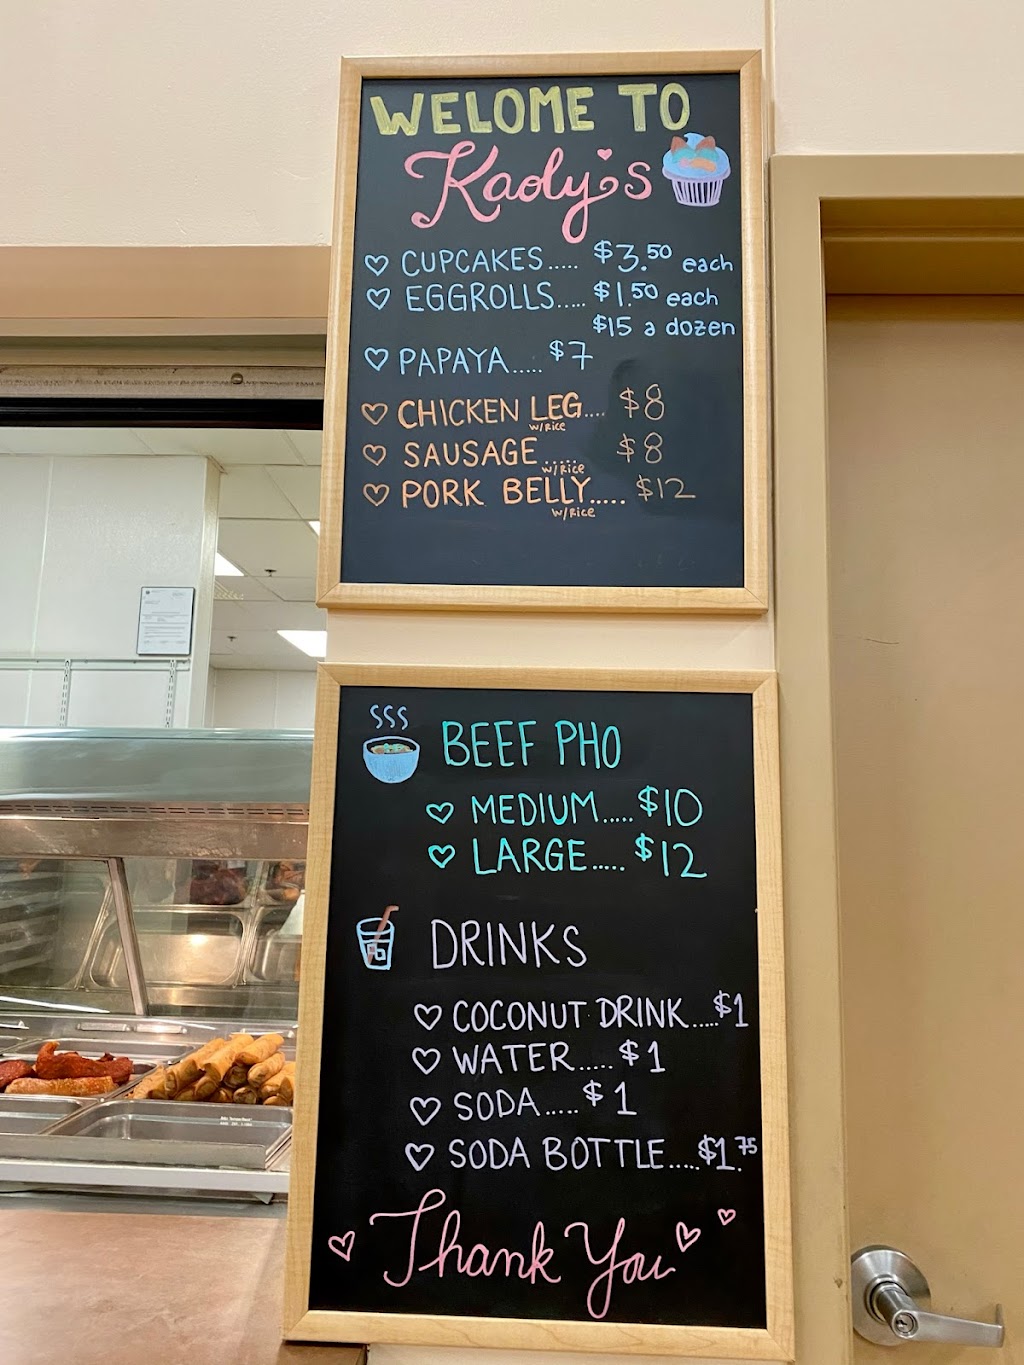 WELOME TO
Kaoly's
♡ CUPCAKES..... $3.50 each
♡ EGGROLLS..... $1.50 each
$15 a dozen
♡ PAPAYA..... $7
♡ CHICKEN LEG.... $8
w/Rice
♡ SAUSAGE..... $8
w/Rice
♡ PORK BELLY..... $12
w/Rice
BEEF PHO
♡ MEDIUM..... $10
♡ LARGE..... $12
DRINKS
♡ COCONUT DRINK..... $1
♡ WATER..... $1
♡ SODA..... $1
♡ SODA BOTTLE..... $1.75
Thank You